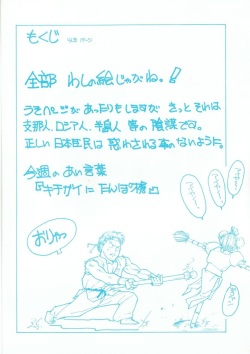 もくじ
全部 わしの絵じゃがね。!
うそページがあったりもしますが きっと それは
支那人、ロシア人、半島人 等の陰謀です。
正しい 日本住民は 惑わされる事のないように。
今週の あい言葉
『キチガイに たんぽ槍』
おりゃっ